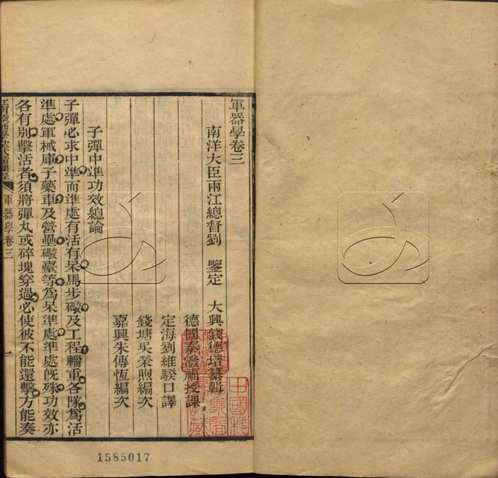 軍器學卷三
南洋大臣兩江總督劉 鑒定 大興錢德培纂輯
德國泰
授課
定海劉維
口譯
錢塘吳
煦編次
嘉興朱傳恆編次
子彈中準功效總論
子彈必求中準而準處有活有呆馬步礮及工程輜重各隊爲活
準處軍械庫子藥車及營壘礮臺等爲呆準處準處旣殊功效亦
各有別擊活者須將彈丸或碎塊穿過必使彼不能還擊方能奏
軍器學卷三
1585017